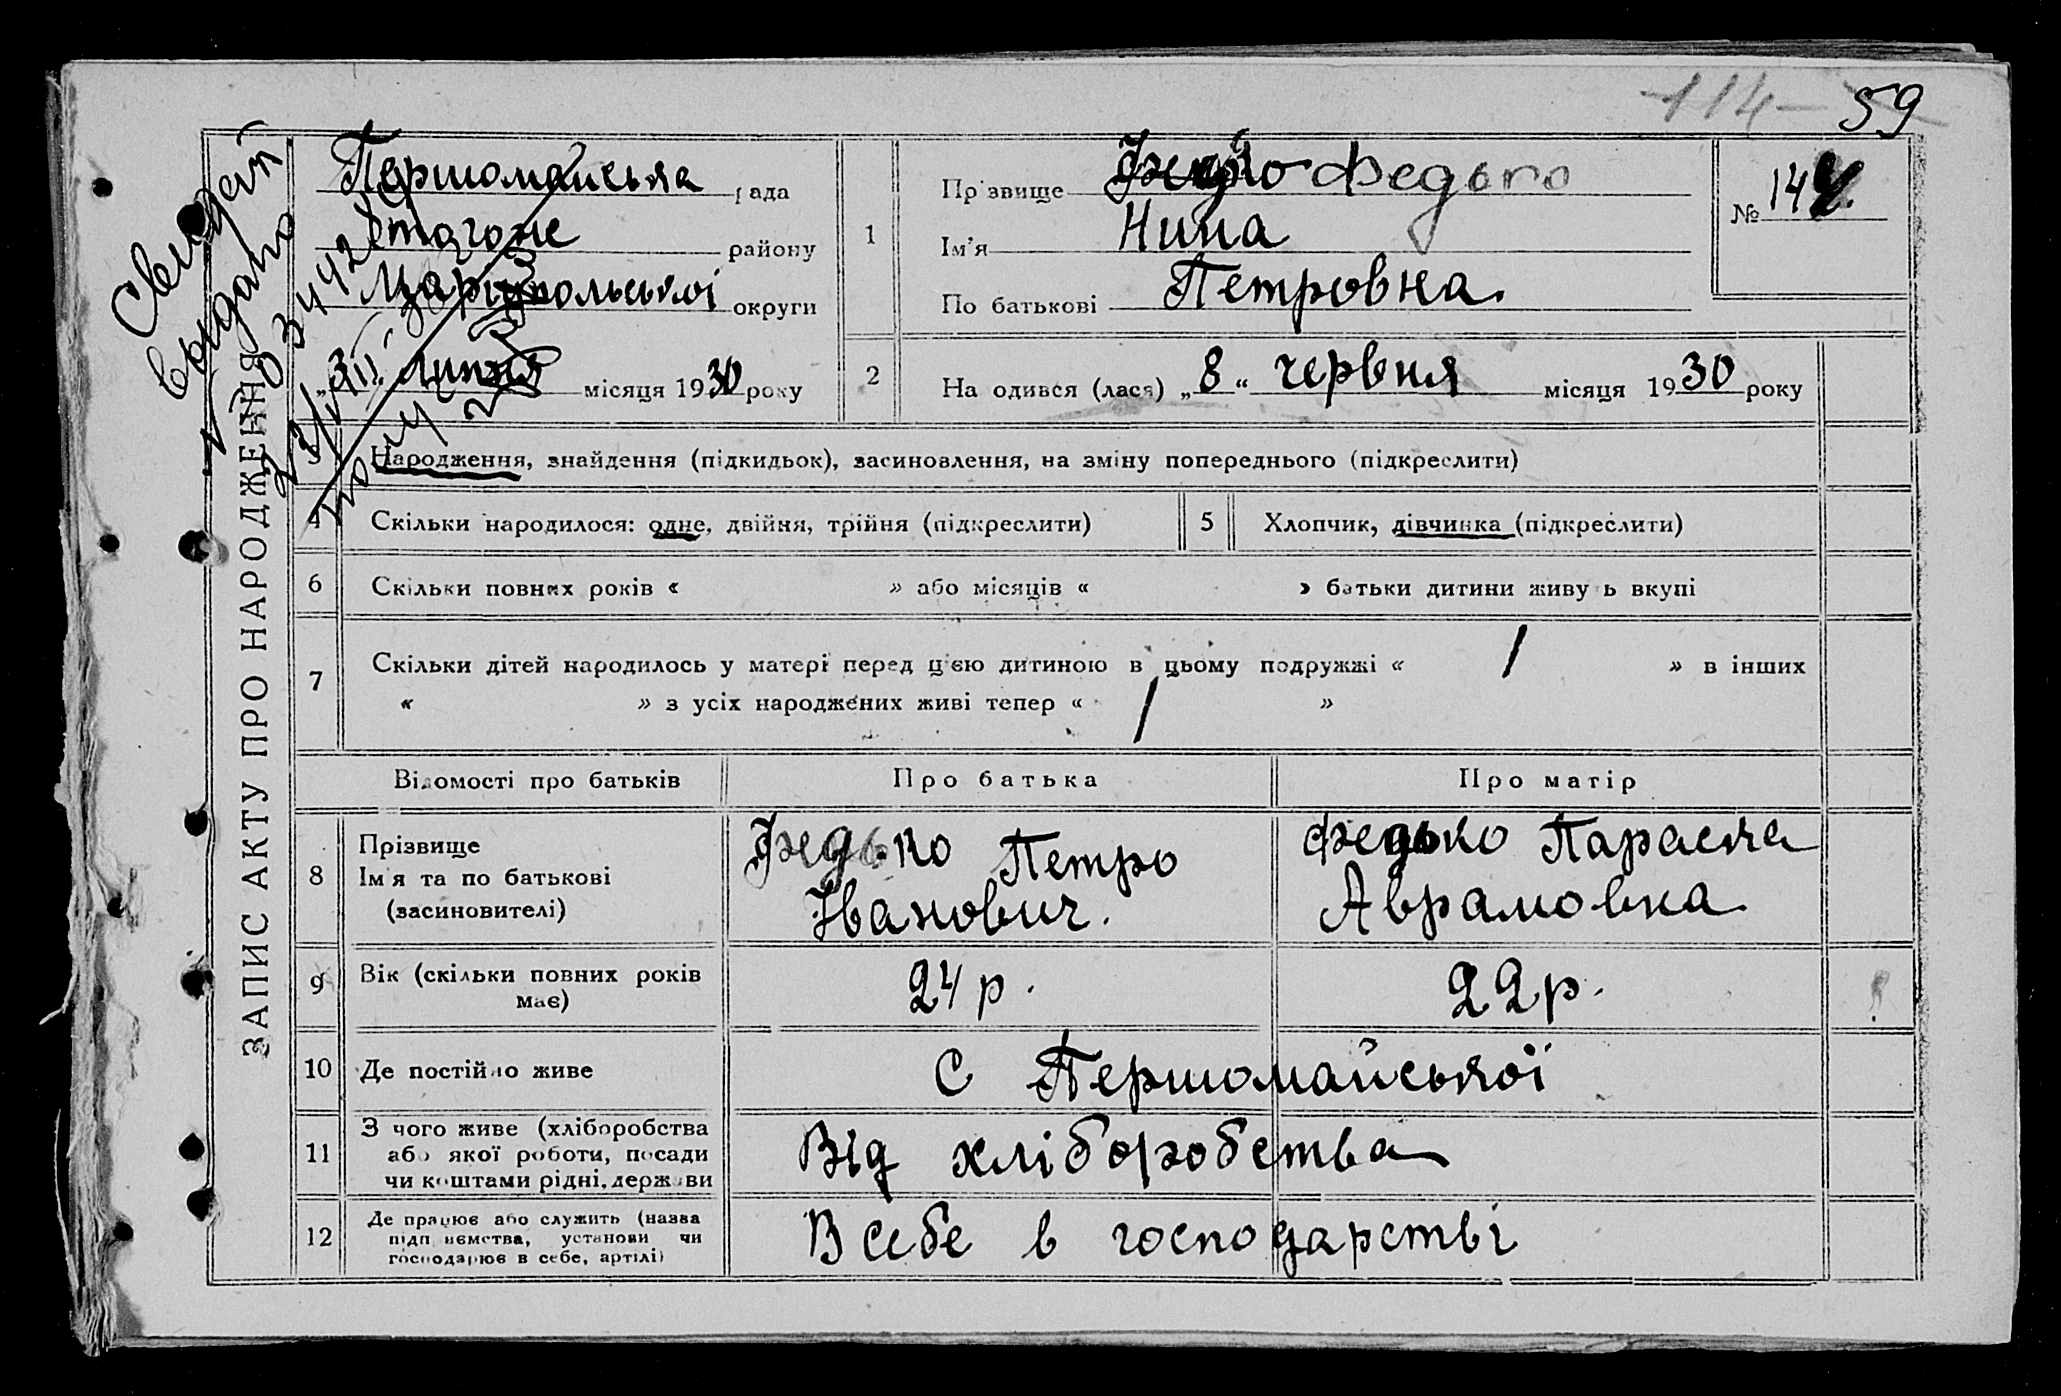 114 59
Першомайська рада
району
Маріупольської округи
„3“ липня місяця 1930 року
Свидет
выдано
ЗАПИС АКТУ ПРО НАРОДЖЕННЯ
1
Прізвище Федько
Ім'я Нина
По батькові Петровна.
№ 144
2
На одився (лася) „8“ червня місяця 1930 року
3 Народження, знайдення (підкидьок), засиновлення, на зміну попереднього (підкреслити)
4 Скільки народилося: одне, двійня, трійня (підкреслити) 5 Хлопчик, дівчинка (підкреслити)
6 Скільки повних років « » або місяців « » батьки дитини живуть вкупі
7
Скільки дітей народилось у матері перед цією дитиною в цьому подружжі « 1 » в інших
« » з усіх народжених живі тепер « 1 »
Відомості про батьків Про батька Про матір
8
Прізвище
Ім'я та по батькові
(засиновителі)
Федько Петро
Іванович.
Федько Параска
Аврамовна
9
Вік (скільки повних років
має)
24 р. 22 р.
10 Де постійно живе С Першомайської
11
З чого живе (хліборобства
або якої роботи, посади
чи коштами рідні, держави
Від хліборобства
12
Де працює або служить (назва
підприємства, установи чи
господарює в себе, артілі)
В себе в господарстві